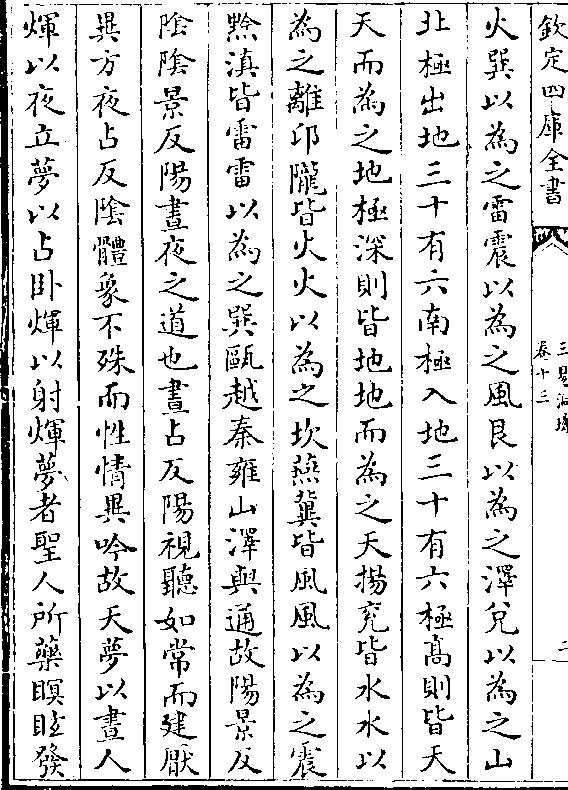 欽定四庫全書
三易洞璣
卷十三
二
火巽以為之雷震以為之風艮以為之澤兌以為之山
北極出地三十有六南極入地三十有六極高則皆天
天而為之地極深則皆地地而為之天揚兗皆水水以
為之離卭隴皆火火以為之坎燕冀皆風風以為之震
黔滇皆雷雷以為之巽甌越秦雍山澤與通故陽景反
陰陰景反陽晝夜之道也晝占反陽視聽如常而建厭
異方夜占反陰體象不殊而性情異吟故天夢以晝人
煇以夜立夢以占卧煇以射煇夢者聖人所藥瞑眩發